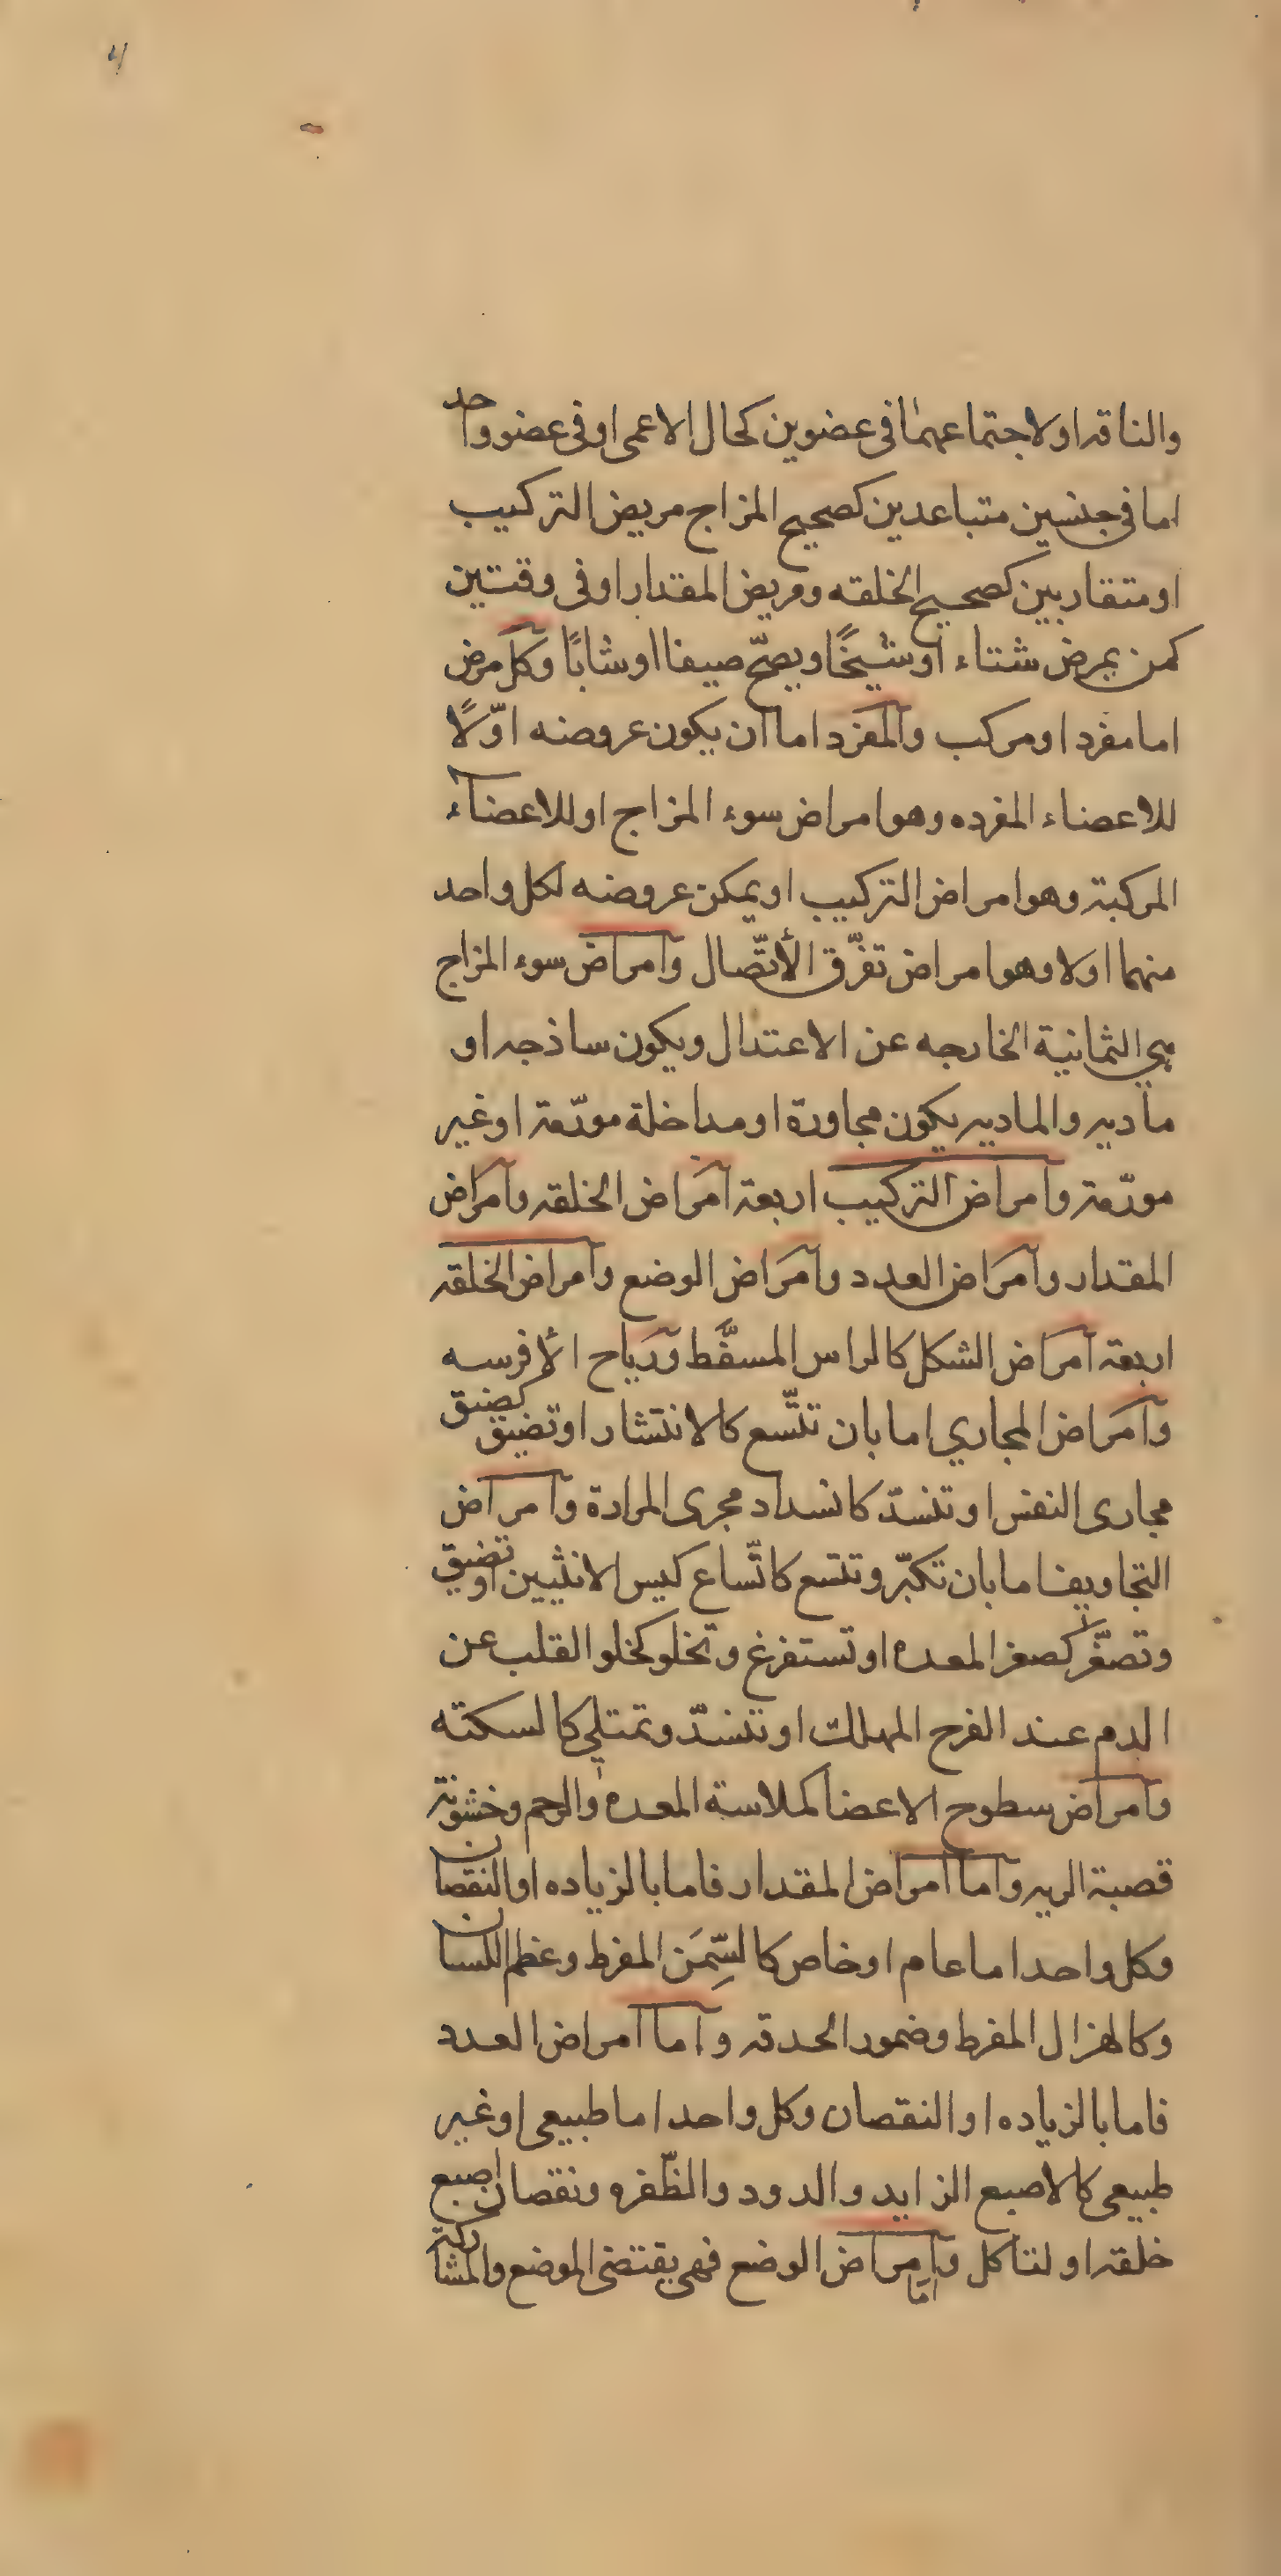 والناقه او لاجتماعهما فى عضوين كحال الاعمى او فى عضو واحد
اما فى جنسين متباعدين كصحيح المزاج مريض التركيب
او متقاربين كصحيح الخلقه ومريض المقدار او فى وقتين
كمن يمرض شتاء او شيخًا ويصحّ صيفا او شابًا وكل مرض
اما مفرد او مركب والمفرد اما ان يكون عروضه اوّلًا
للاعضاء المفرده وهو امراض سوء المزاج او للاعضآء
المركبة وهو امراض التركيب او يمكن عروضه لكل واحد
منهما اولا وهو امراض تفرّق الأتّصال وامراض سوء المزاج
هي الثمانية الخارجه عن الاعتدال ويكون ساذجه او
ماديه والماديه يكون مجاورة او مداخلة مورّمة او غير
مورّمة وامراض التركيب اربعة امراض الخلقه وامراض
المقدار وامراض العدد وامراض الوضع وامراض الخلقه
اربعة امراض الشكل كالراس المسفَّط ورياح الأفرسه
وامراض المجاري اما بان تتّسع كالانتشار او تضيق كضيق
مجارى النفس او تنسدّ كانسداد مجرى المرارة وامراض
التجاويف اما بان تكبّر وتتسع كاتّساع كيس الانثيين او تضيق
وتصغّر كصغر المعده او تستفرغ وتخلو كخلو القلب عن
الدم عند الفرح المهلك او تنسدّ وتمتلي كالسكتة
وامراض سطوح الاعضا كملاسة المعده والرحم وخشونة
قصبة الريه واما امراض المقدار فاما بالزياده او النقصان
وكل واحد اما عام او خاص كالسِّمَن المفرط وعظم اللسان
وكالهزال المفرط وضمور الحدقه واما امراض العدد
فاما بالزياده او النقصان وكل واحد اما طبيعى او غير
طبيعى كالاصبع الزايد والدود والظّفره ونقصان اصبع
خلقة او لتاكل واما امراض الوضع فهى يقتضى الموضع والمشاركة